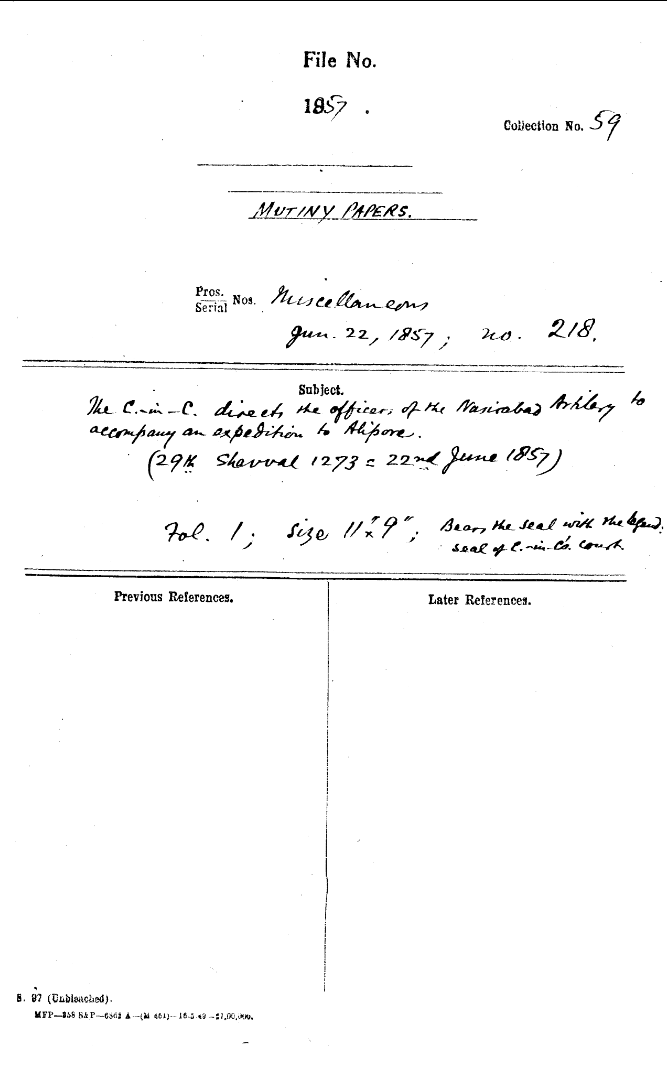 File No.
1857.
Collection No. 59
MUTINY PAPERS.
Pros.
Serial Nos. Miscellaneous
Jun. 22, 1857; no. 218.
Subject.
The C.-in-C. directs the officers of the Nasirabad Artillery to
accompany an expedition to Alipore.
(29th Shavval 1273 = 22nd June 1857)
Fol. 1; Size 11"x9"; Bears the seal with the legend.
seal of C.-in-C's. court.
Previous References.
Later References.
S. 97 (Unbleached).
MFP—358 S&P— A—(M 461)—16-5-49—27,00,000.